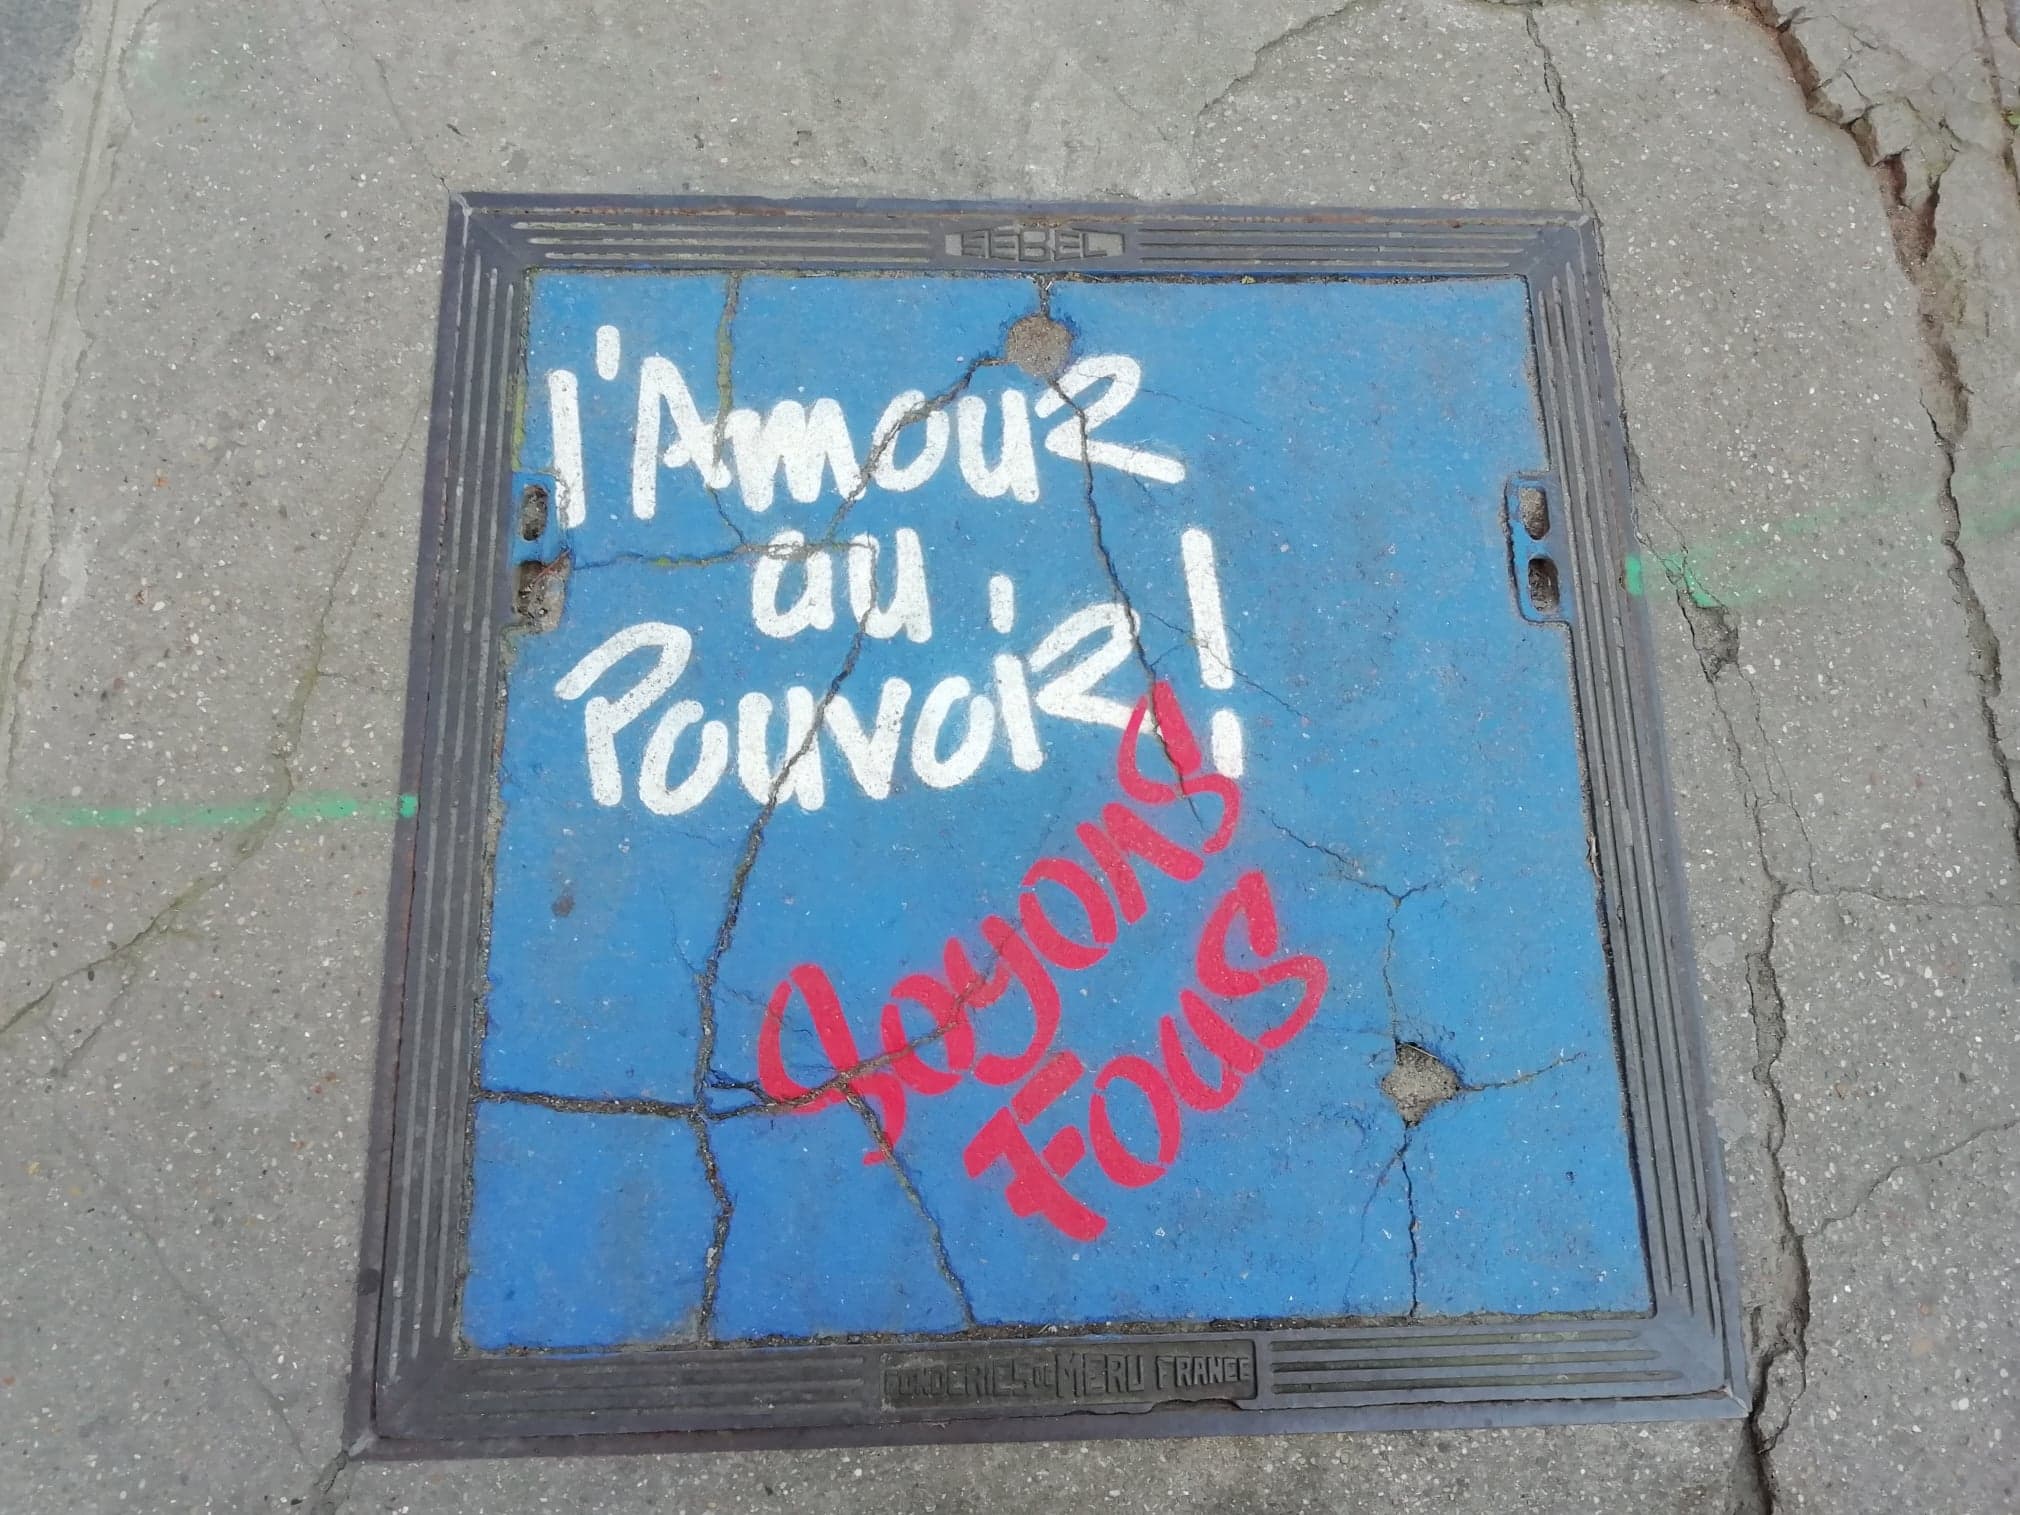 SEBEC
l'Amour
au
Pouvoir !
Soyons
Fous
FONDERIES DE MERU FRANCE